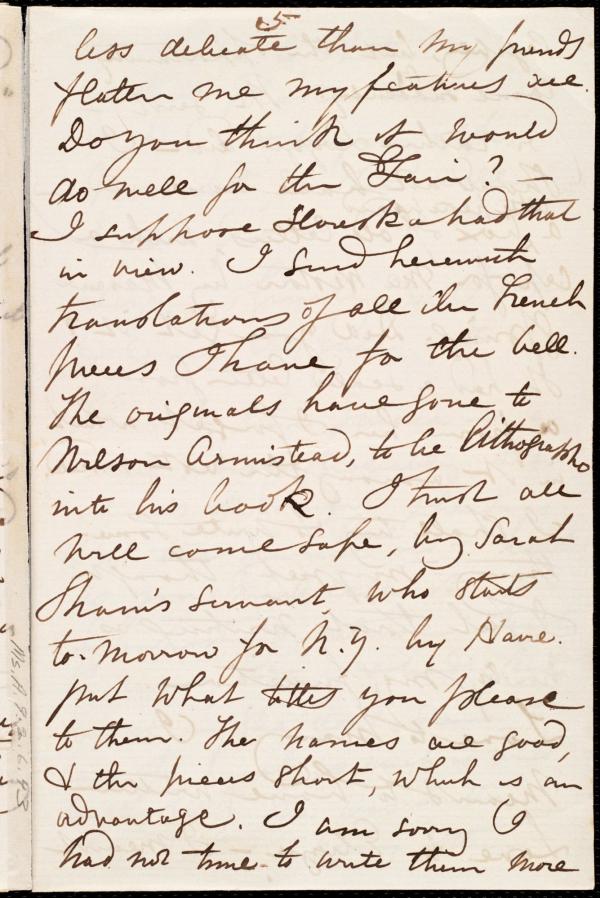 5
less delicate than my friends
flatter me my features are.
Do you think it would
do well for the Fair? —
I suppose had that
in view. I send herewith
translations of all the French
pieces I have for the bell.
The originals have gone to
Wilson Armistead, to be lithographd
into his book. I trust all
will come safe, by Sarah
servant, who starts
to-morrow for N.Y. by Havre.
put what titles you please
to them. The names are good,
& the pieces short, which is an
advantage. I am sorry I
had not time to write them more
Ms. A. 9. 2. 6. 43